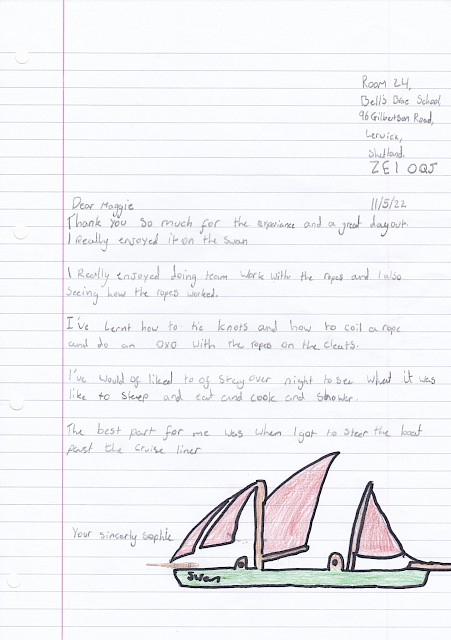 Room 24,
Bell's Brae School
96 Gilbertson Road,
Lerwick,
Shetland,
ZE1 0QJ
Dear Maggie 11/5/22
Thank you so much for the experience and a great day out.
I Really enjoyed it on the Swan
I Really enjoyed doing team work with the ropes and I also
seeing how the ropes worked.
I've lernt how to tie knots and how to coil a rope
and do an OXO with the ropes on the cleats.
I've would of liked to of stay over night to see what it was
like to sleep and eat and cook and shower.
The best part for me was when I got to steer the boat
past the cruise liner
Your sincerly Sophie
Swan